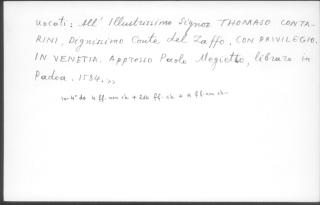 vocati: All' Illustrissimo Signor THOMASO CONTA-
RINI, Dignissimo Conte del Zaffo. CON PRIVILEGIO.
IN VENETIA. Appresso Paolo Megietto, libraro in
Padoa. 1584.»
in-4° da 4 ff. nn ch + 264 ff. ch + 4 ff. nn ch